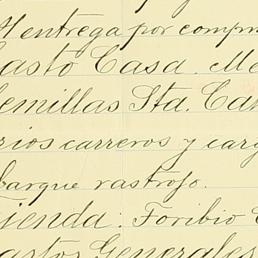 entrega por comp
asto Casa. Me
emillas Sta. Ca
rios carreros y carg
barque rastrojo.
ienda: Toribio
astos Generales